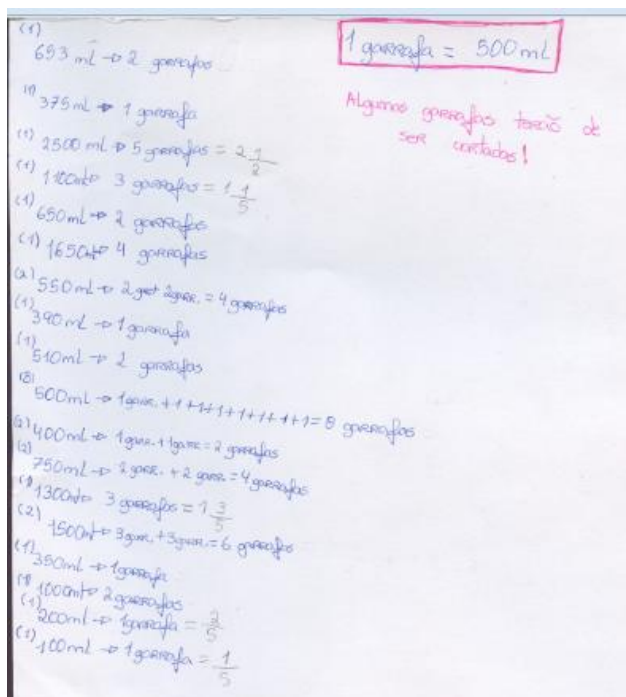 1 garrafa = 500 ml
Algumas garrafas terão de
ser cortadas!
(1)
693 ml → 2 garrafas
(1) 375 ml → 1 garrafa
(1) 2500 ml → 5 garrafas = 2 1/2
(1) 1100 ml → 3 garrafas = 1 1/5
(1) 650 ml → 2 garrafas
(1) 1650 ml → 4 garrafas
(2) 550 ml → 2 gar + 2 garr. = 4 garrafas
(1) 390 ml → 1 garrafa
(1) 510 ml → 2 garrafas
(8) 500 ml → 1 garr. + 1 + 1 + 1 + 1 + 1 + 1 + 1 = 8 garrafas
(2) 400 ml → 1 garr. + 1 garr. = 2 garrafas
(2) 750 ml → 2 garr. + 2 garr. = 4 garrafas
(1) 1300 ml → 3 garrafas = 1 3/5
(2) 1500 ml → 3 garr. + 3 garr. = 6 garrafas
(1) 350 ml → 1 garrafa
(1) 1000 ml → 2 garrafas
(1) 200 ml → 1 garrafa = 2/5
(1) 100 ml → 1 garrafa = 1/5